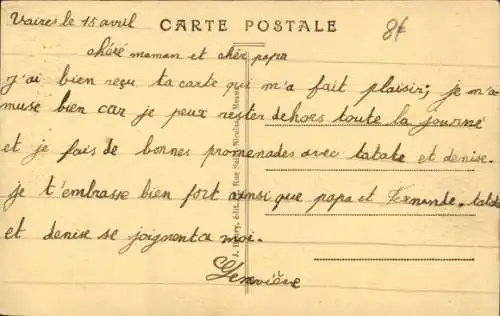 Vaires le 15 avril
CARTE POSTALE
8€
chéré maman et chér papa
j'ai bien reçu ta carte qui m'a fait plaisir, je m'a
muse bien car je peux rester dehors toute la journé
et je fais de bonnes promenades avec tatate et denise.
je t'embrasse bien fort ainsi que papa et Fernande. tatate
et denise se joignent a moi.
Geneviève